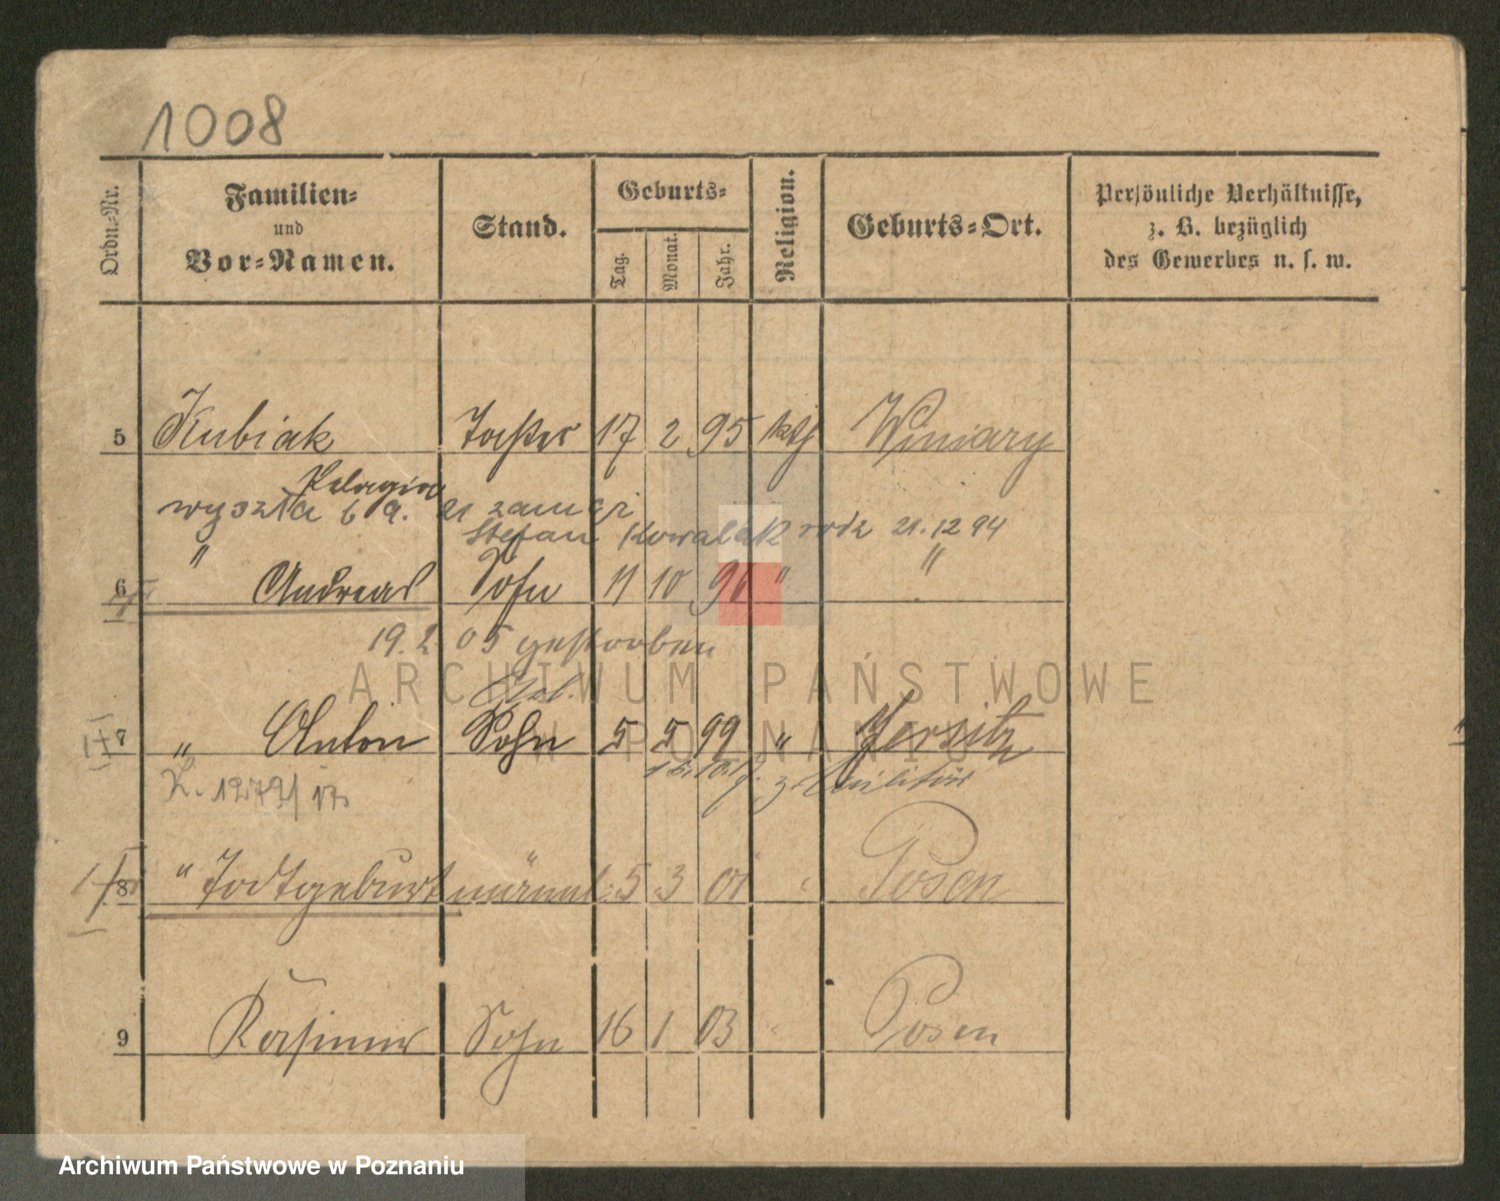 1008
Ordn.-Nr. Familien- und Vor-Namen. Stand. Geburts- Tag. Monat. Jahr. Religion. Geburts-Ort. Persönliche Verhältnisse, z. B. bezüglich des Gewerbes u. s. w.
5 Kubiak Tochter 17 2 95 kth Winiary
Pelagia
wyszła 6 9. 21 zamąż
Stefan Kowalak rodz 21.12 94
"
6 Andreas Sohn 11 10 96 " "
19.2 05 gestorben
7 " Anton Sohn 5 5 99 " Jersitz
z. Militär
K. 1272/17
8 " Todtgeburt männl. 5 3 01 " Posen
9 Kasimir Sohn 16 1 03 " Posen
ARCHIWUM PAŃSTWOWE
W POZNANIU
Archiwum Państwowe w Poznaniu